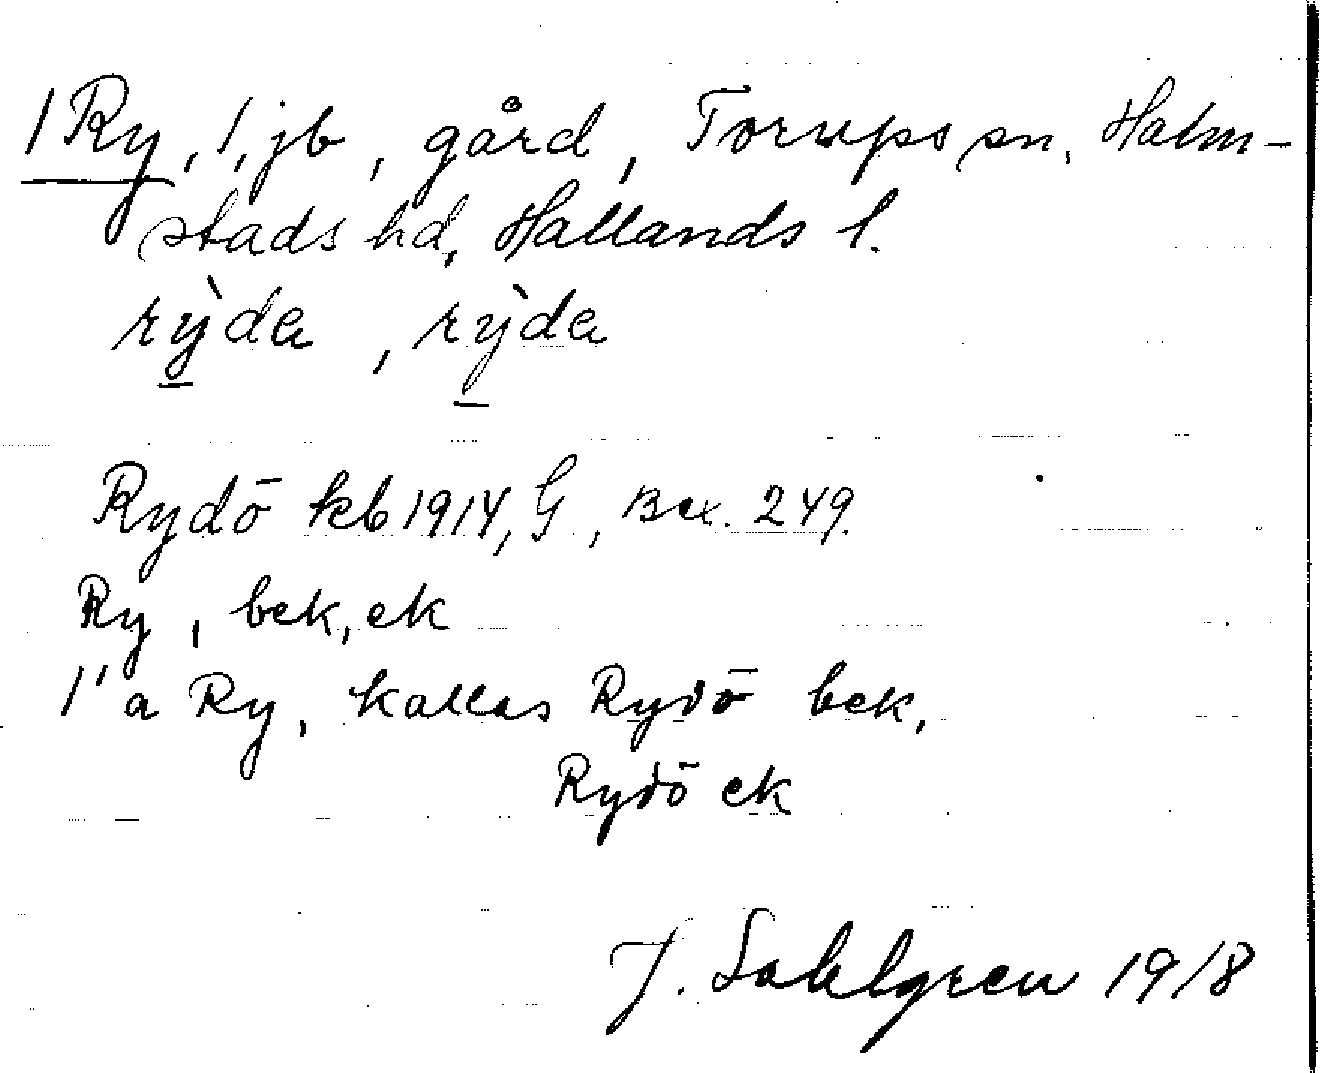 1 Ry, 1, jb, gård, Torups sn, Halm-
stads hd, Hallands l.
rỳda, rỳda
Rydö kb 1914, G, Bex. 249.
Ry, bek, ek
1'a Ry, kallas Rydö bek,
Rydö ek
J. Sahlgren 1918